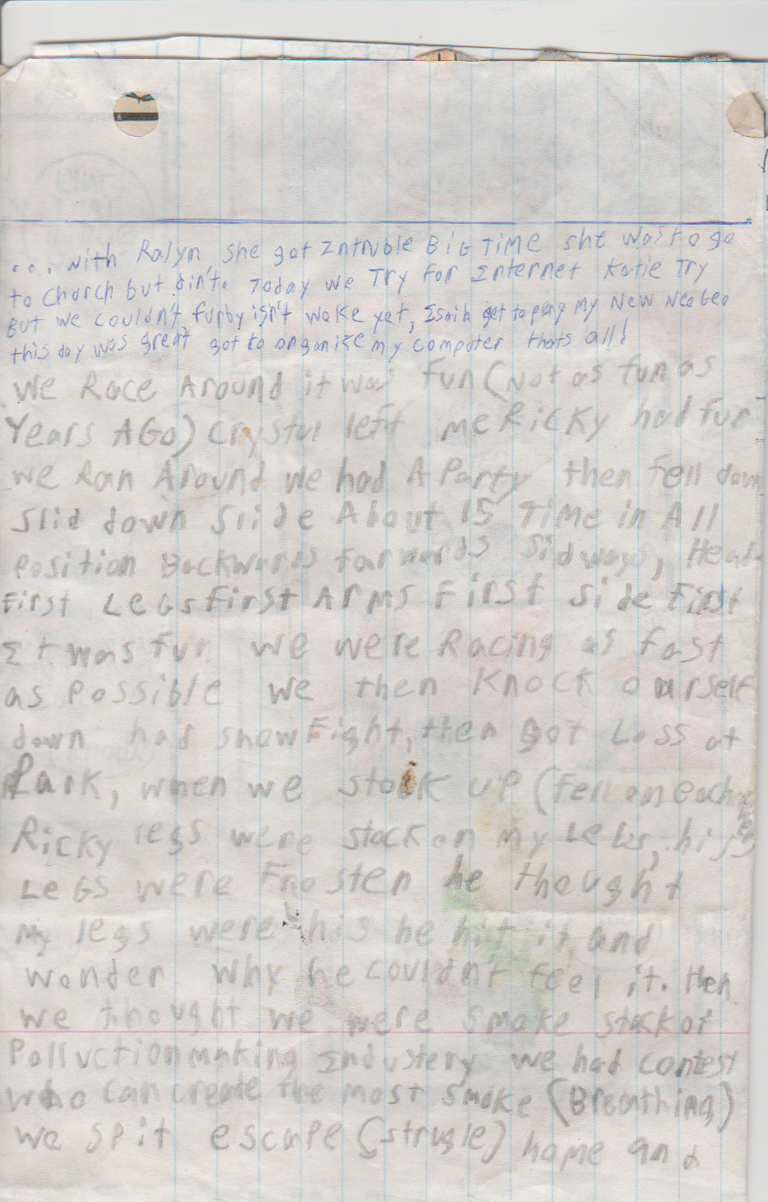 ... with Ralyn she got Intruble BIG TIME she was to go
to Church but din't. Today we Try for Internet Katie Try
But we couldn't furby isn't wake yet, get to play My New NeoGeo
this day was great got to organize my computer thats all!
We Race Around it was fun (Not as fun as
Years AGo) Crystal left me Ricky had fun
we Ran Around we had A Party then fell down
Slid down Slide About 15 Time in All
Position Backwards farwards Sidways, Head-
First LeGs First Arms First Side First
It was fun we were Racing as fast
as Possible we then Knock ourself
down had snow Fight, then got Loss at
Park, when we stock up (fell on each
Ricky legs were stock on my Legs, his
LeGs were Frosten he thought
My legs were his he hit it and
wonder why he couldn't feel it. then
we thought we were smoke stack of
Polluction making Industery we had contest
who can create the most smoke (Breathing)
we spit escape (strugle) home and